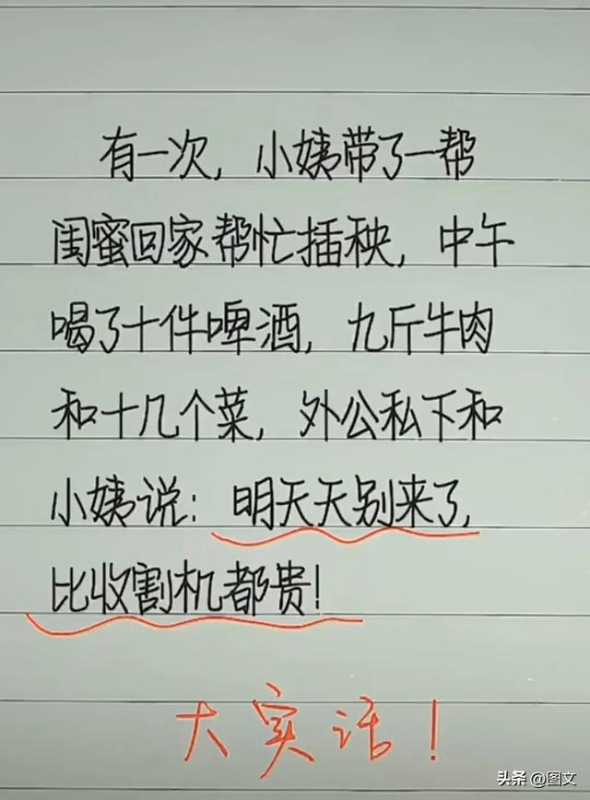 有一次，小姨带了一帮
闺蜜回家帮忙插秧，中午
喝了十件啤酒，九斤牛肉
和十几个菜，外公私下和
小姨说：明天天别来了，
比收割机都贵！
大实话！
头条 @图文